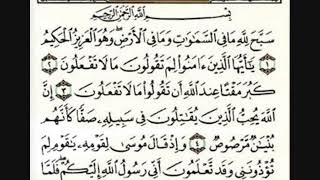 بِسْمِ اللَّهِ الرَّحْمَٰنِ الرَّحِيمِ
سَبَّحَ لِلَّهِ مَا فِي السَّمَٰوَٰتِ وَمَا فِي الْأَرْضِ وَهُوَ الْعَزِيزُ الْحَكِيمُ
١ يَٰٓأَيُّهَا الَّذِينَ ءَامَنُوا لِمَ تَقُولُونَ مَا لَا تَفْعَلُونَ ٢
كَبُرَ مَقْتًا عِندَ اللَّهِ أَن تَقُولُوا مَا لَا تَفْعَلُونَ ٣ إِنَّ
اللَّهَ يُحِبُّ الَّذِينَ يُقَٰتِلُونَ فِي سَبِيلِهِ صَفًّا كَأَنَّهُم
بُنْيَٰنٌ مَّرْصُوصٌ ٤ وَإِذْ قَالَ مُوسَىٰ لِقَوْمِهِ يَٰقَوْمِ لِمَ
تُؤْذُونَنِي وَقَد تَّعْلَمُونَ أَنِّي رَسُولُ اللَّهِ إِلَيْكُمْ فَلَمَّا